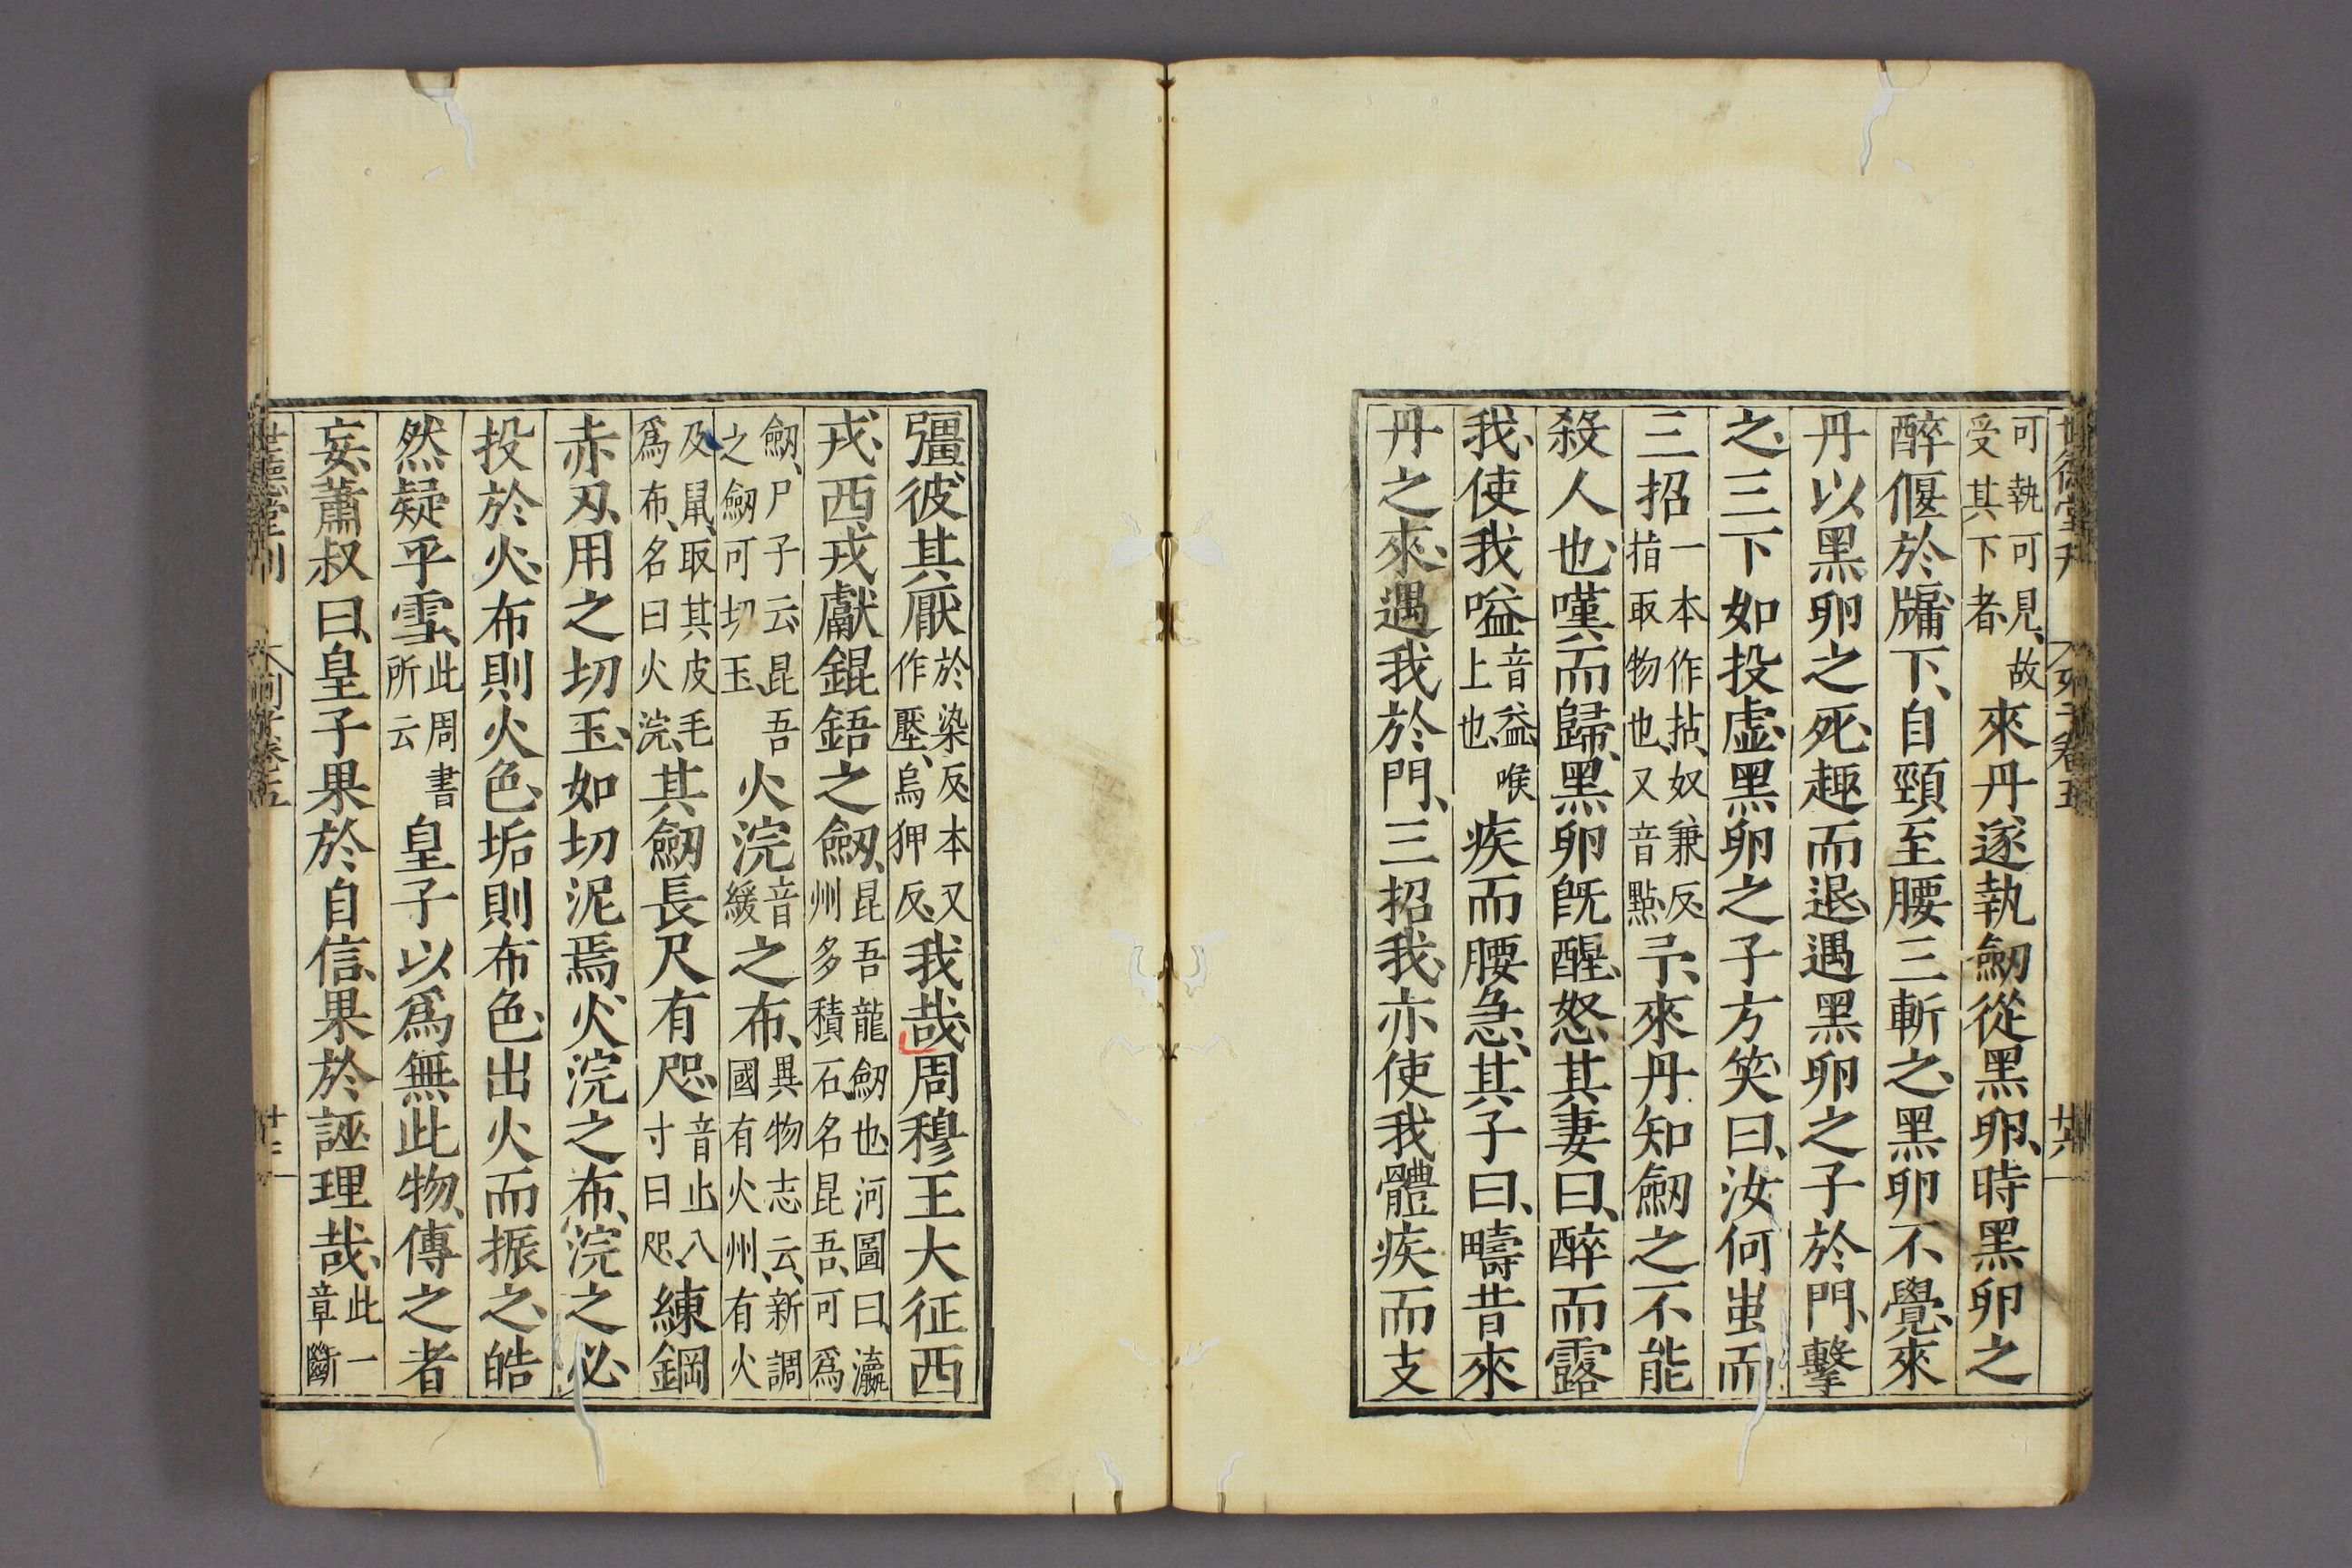 可執可見、故受其下者、來丹遂執劒從黑卵、時黑卵之
醉偃於牖下、自頸至腰三斬之、黑卵不覺、來
丹以黑卵之死、趣而退、遇黑卵之子於門、擊
之、三下如投虛、黑卵之子方笑曰、汝何蚩而
三招一本作拈、奴兼反、指取物也、又音點、予、來丹知劒之不能
殺人也、嘆而歸、黑卵既醒、怒其妻曰、醉而露
我、使我嗌音益、喉上也、疾而腰急、其子曰、疇昔來
丹之來、遇我於門、三招我、亦使我體疾而支
彊、彼其厭於染反、本又作壓、烏狎反、我哉、周穆王大征西
戎、西戎獻錕鋙之劒、昆吾龍劒也、河圖曰、瀛州多積石、名昆吾、可爲
劒、尸子云、昆吾之劒可切玉、火浣音緩之布、異物志云、新調國有火州、有火
及鼠、取其皮毛爲布、名曰火浣、其劒長尺有咫、音止、八寸曰咫、練鋼
赤刃、用之切玉、如切泥焉、火浣之布、浣之必
投於火、布則火色、垢則布色、出火而振之、皓
然疑乎雪、此周書所云皇子以爲無此物、傳之者
妄、蕭叔曰、皇子果於自信、果於誣理哉、此一章斷
世德堂刊
列子卷五